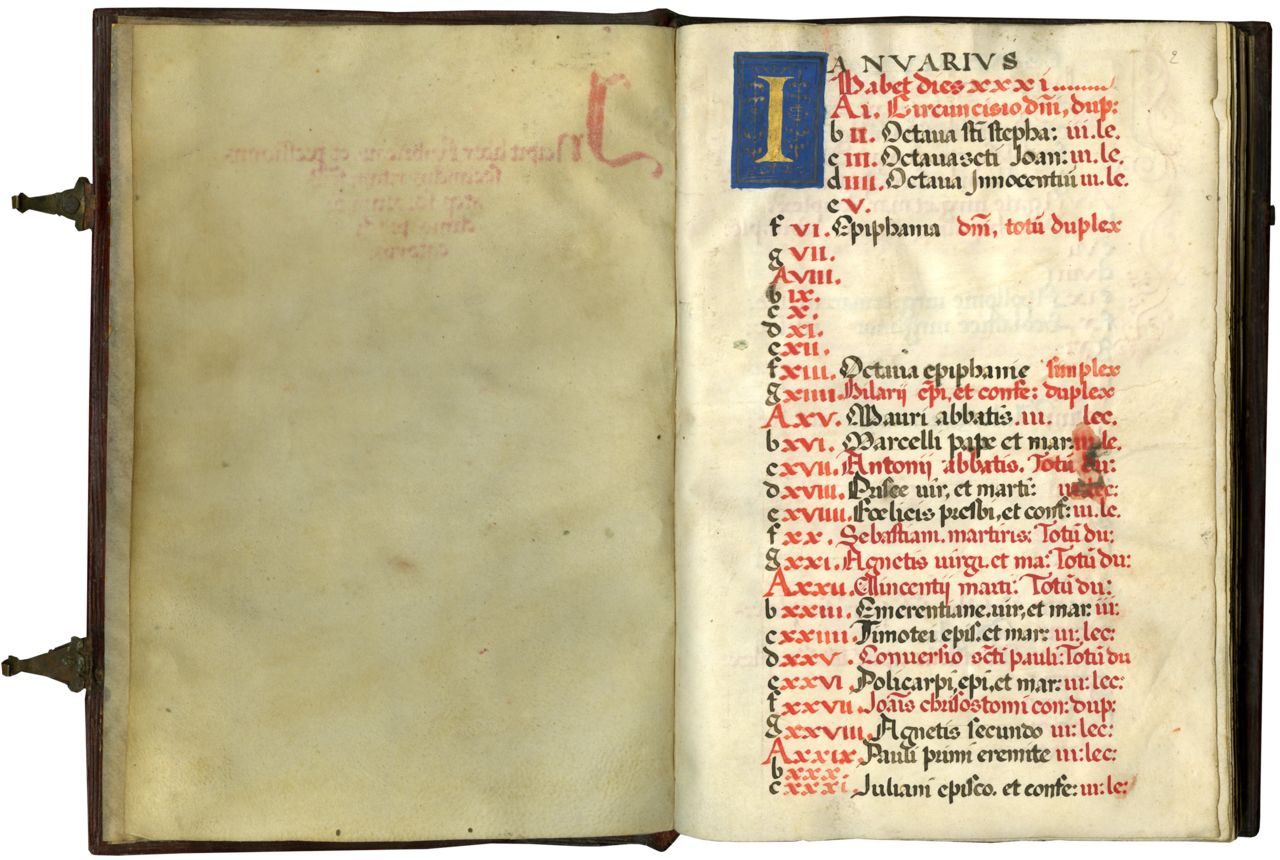 2
IANVARIVS
Habet dies xxxi
A i. Circuncisio dñi, dup:
b II. Octaua sti stepha: iii.le.
c III. Octaua scti Joan: iii.le.
d IIII. Octaua Innocentiũ iii.le.
e V.
f VI. Epiphania dñi, totũ duplex
g VII.
A VIII.
b IX.
c X.
d XI.
e XII.
f XIII. Octaua epiphanie simplex
g XIIII. Hilarij epi, et confe: duplex
A XV. Mauri abbatis. iii. lec.
b XVI. Marcelli pape et mar. iii.le.
c XVII. Antonij abbatis. Totũ du:
d XVIII. Prisce uir, et marti: iii.lec:
e XVIIII. Fœlicis presbi, et conf: iii.le.
f XX. Sebastiani. martiris: Totũ du:
g XXI. Agnetis uirgi. et ma: Totũ du:
A XXII. Vincentij marti: Totũ du:
b XXIII. Emerentiane. uir, et mar: iii:
c XXIIII. Timotei epis. et mar: iii:lec:
d XXV. Conuersio scti pauli: Totũ du
e XXVI. Policarpi, epi, et mar: iii:lec:
f XXVII. Joãis chrisostomi con: dup:
g XXVIII. Agnetis secundo iii:lec:
A XXIX. Pauli primi eremite iii:lec:
b XXX.
c XXXI. Juliani episco. et confe: iii:le: